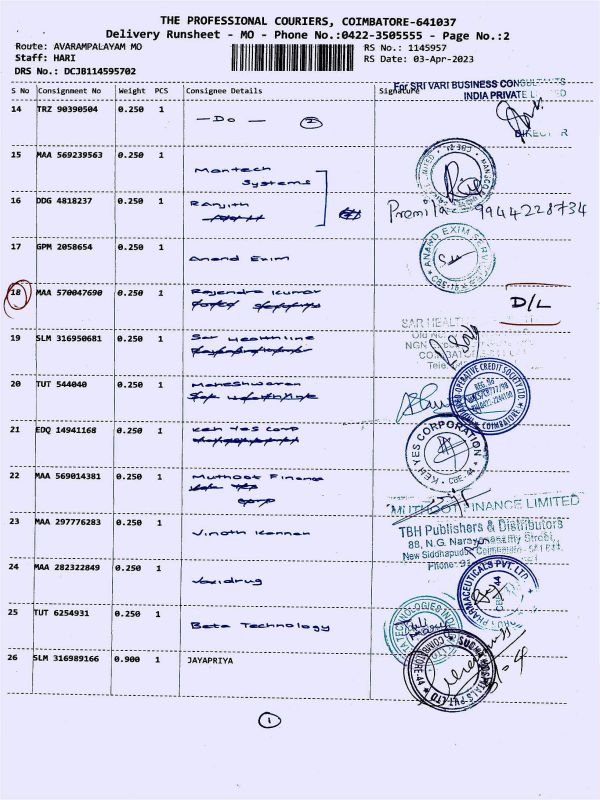 THE PROFESSIONAL COURIERS, COIMBATORE-641037
Delivery Runsheet - MO - Phone No.:0422-3505555 - Page No.:2
Route: AVARAMPALAYAM MO RS No.: 1145957
Staff: HARI RS Date: 03-Apr-2023
DRS No.: DCJB114595702
S No Consignment No Weight PCS Consignee Details Signature
For SRI VARI BUSINESS CONSULTANTS
INDIA PRIVATE LIMITED
14 TRZ 90390504 0.250 1 — Do — 2
DIRECTOR
15 MAA 569239563 0.250 1 Mantech
Systems
16 DDG 4818237 0.250 1 Ranjith Premila 9944228734
17 GPM 2058654 0.250 1 Anand Exim
ANAND EXIM SERVICES CBE-16
18 MAA 570047690 0.250 1 Rajendra Kumar
D/L
19 SLM 316950681 0.250 1 Sar Healthline
SAR HEALTH
20 TUT 544040 0.250 1 Maheshwaran
OPERATIVE CREDIT SOCIETY LTD. COIMBATORE
21 EDQ 14941168 0.250 1 Keh Yes Corp
KEH YES CORPORATION CBE-44
22 MAA 569014381 0.250 1 Muthoot Finance
MUTHOOT FINANCE LIMITED
23 MAA 297776283 0.250 1 Vinoth Kannan
TBH Publishers & Distributors
88, N.G. Narayanasamy Street,
New Siddhapudur, Coimbatore - 641 044.
Phone:
24 MAA 282322849 0.250 1 Voxidrug
PHARMACEUTICALS PVT. LTD
25 TUT 6254931 0.250 1 Beta Technology
BETA TECHNOLOGIES INDIA
26 SLM 316989166 0.900 1 JAYAPRIYA
SUDHA HOSPITALS PVT. LTD. COIMBATORE-44
1